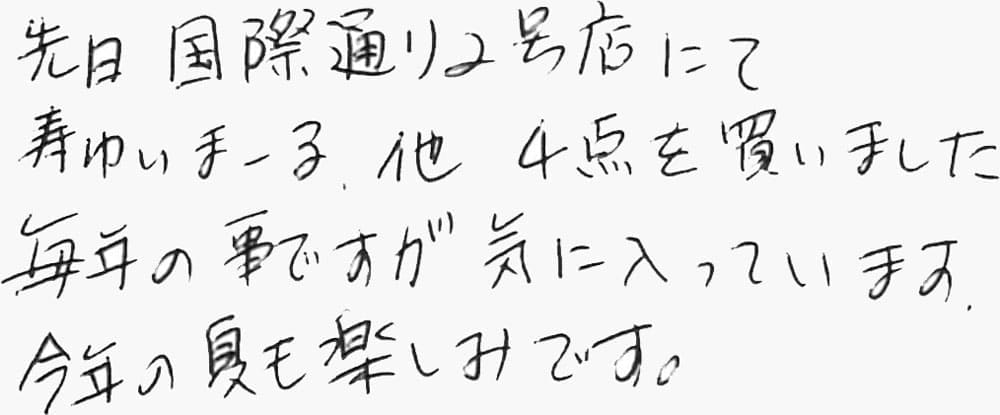 先日 国際通り2号店にて
寿ゆいまーる、他 4点を買いました
毎年の事ですが 気に入っています。
今年の夏も楽しみです。